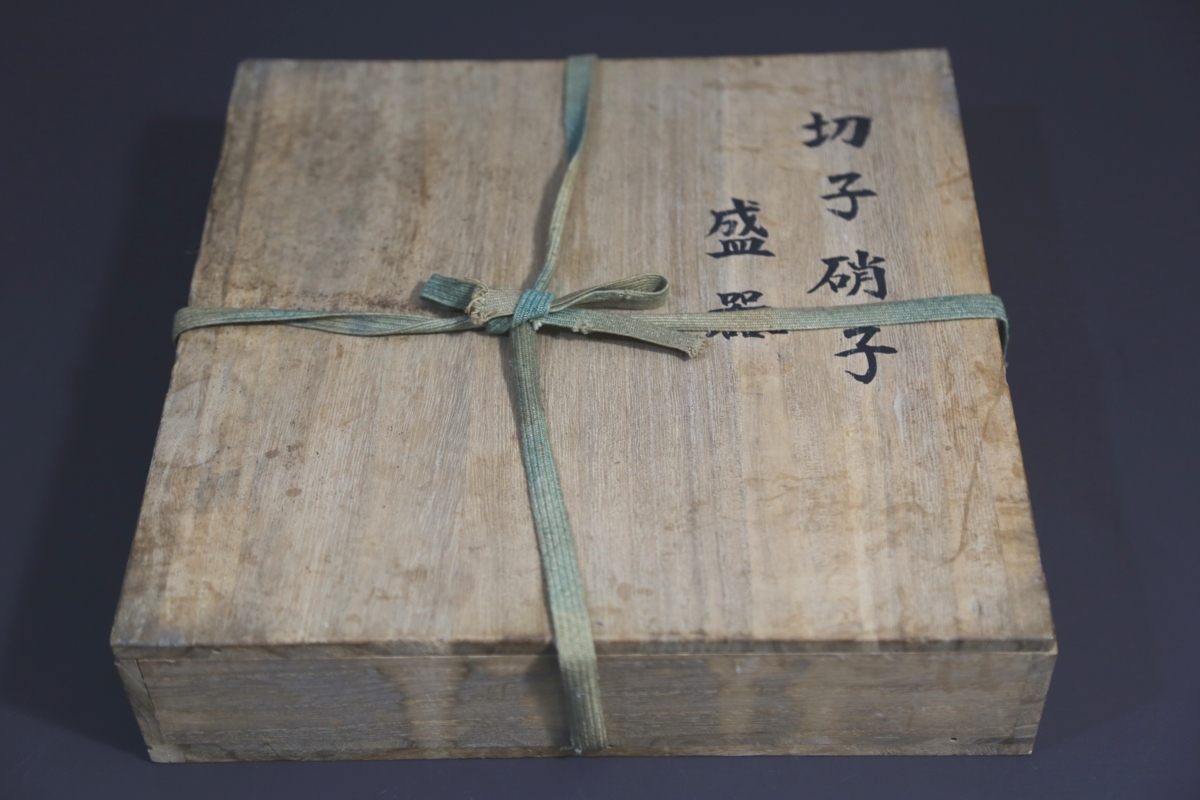 切子硝子
盛器